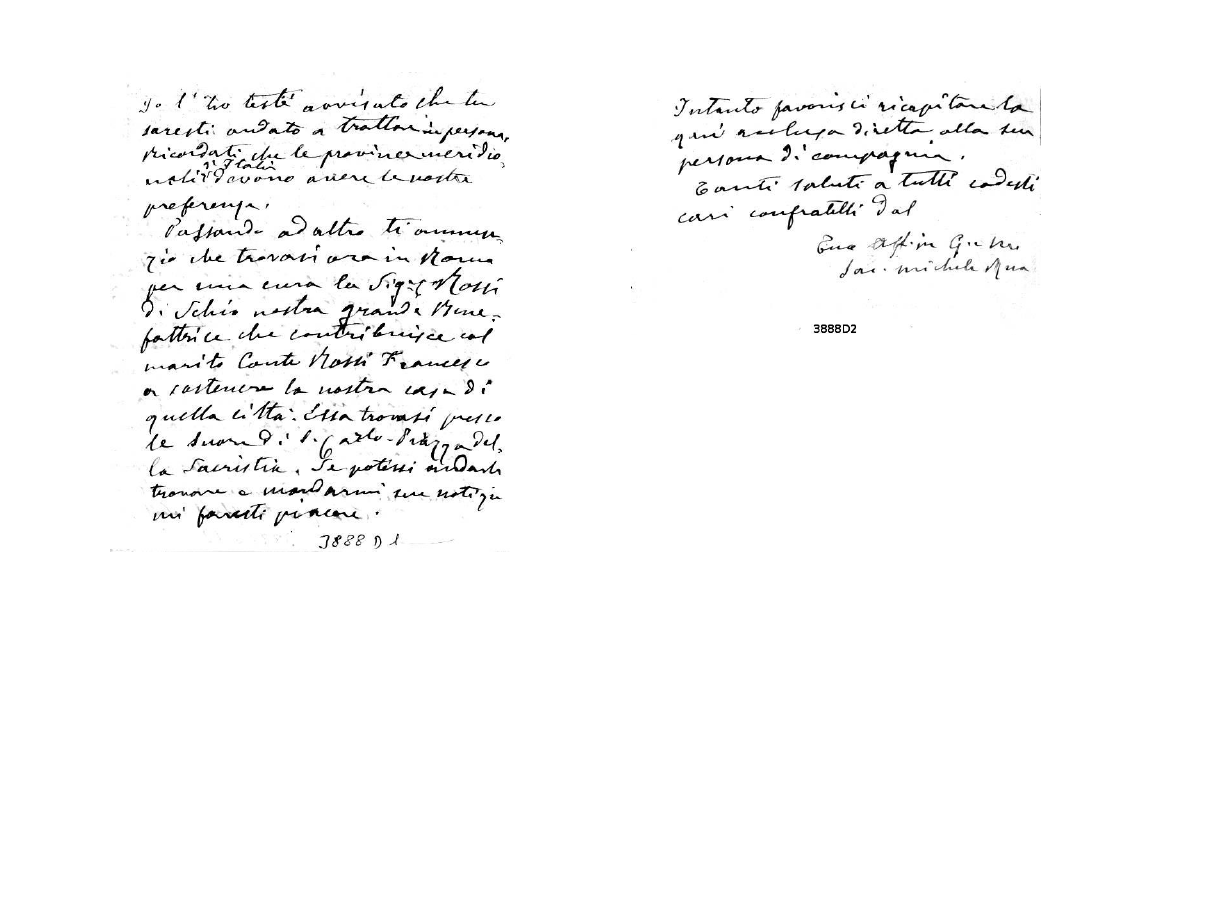 Io l'ho testè avvisato che tu
saresti andato a trattare in persona,
Ricordati che le provincie meridio-
nali d'Italia devono avere la nostra
preferenza.
Passando ad altro ti annun-
zio che trovasi ora in Roma
per una cura la Sig.ra Rossi
di Schio nostra grande Bene-
fattrice che contribuisce col
marito Conte Rossi Francesco
a sostenere la nostra casa di
quella città. Essa trovasi presso
le Suore di S. Carlo - Piazza del-
la Sacristia. Se potessi andarla
trovare e mandarmi sue notizie
mi faresti piacere.
3888 D 1
Intanto favorisci ricapitare la
qui acclusa diretta alla sua
persona di compagnia.
Tanti saluti a tutti codesti
cari confratelli dal
Tuo Aff in G
Sac. Michele Rua
3888D2